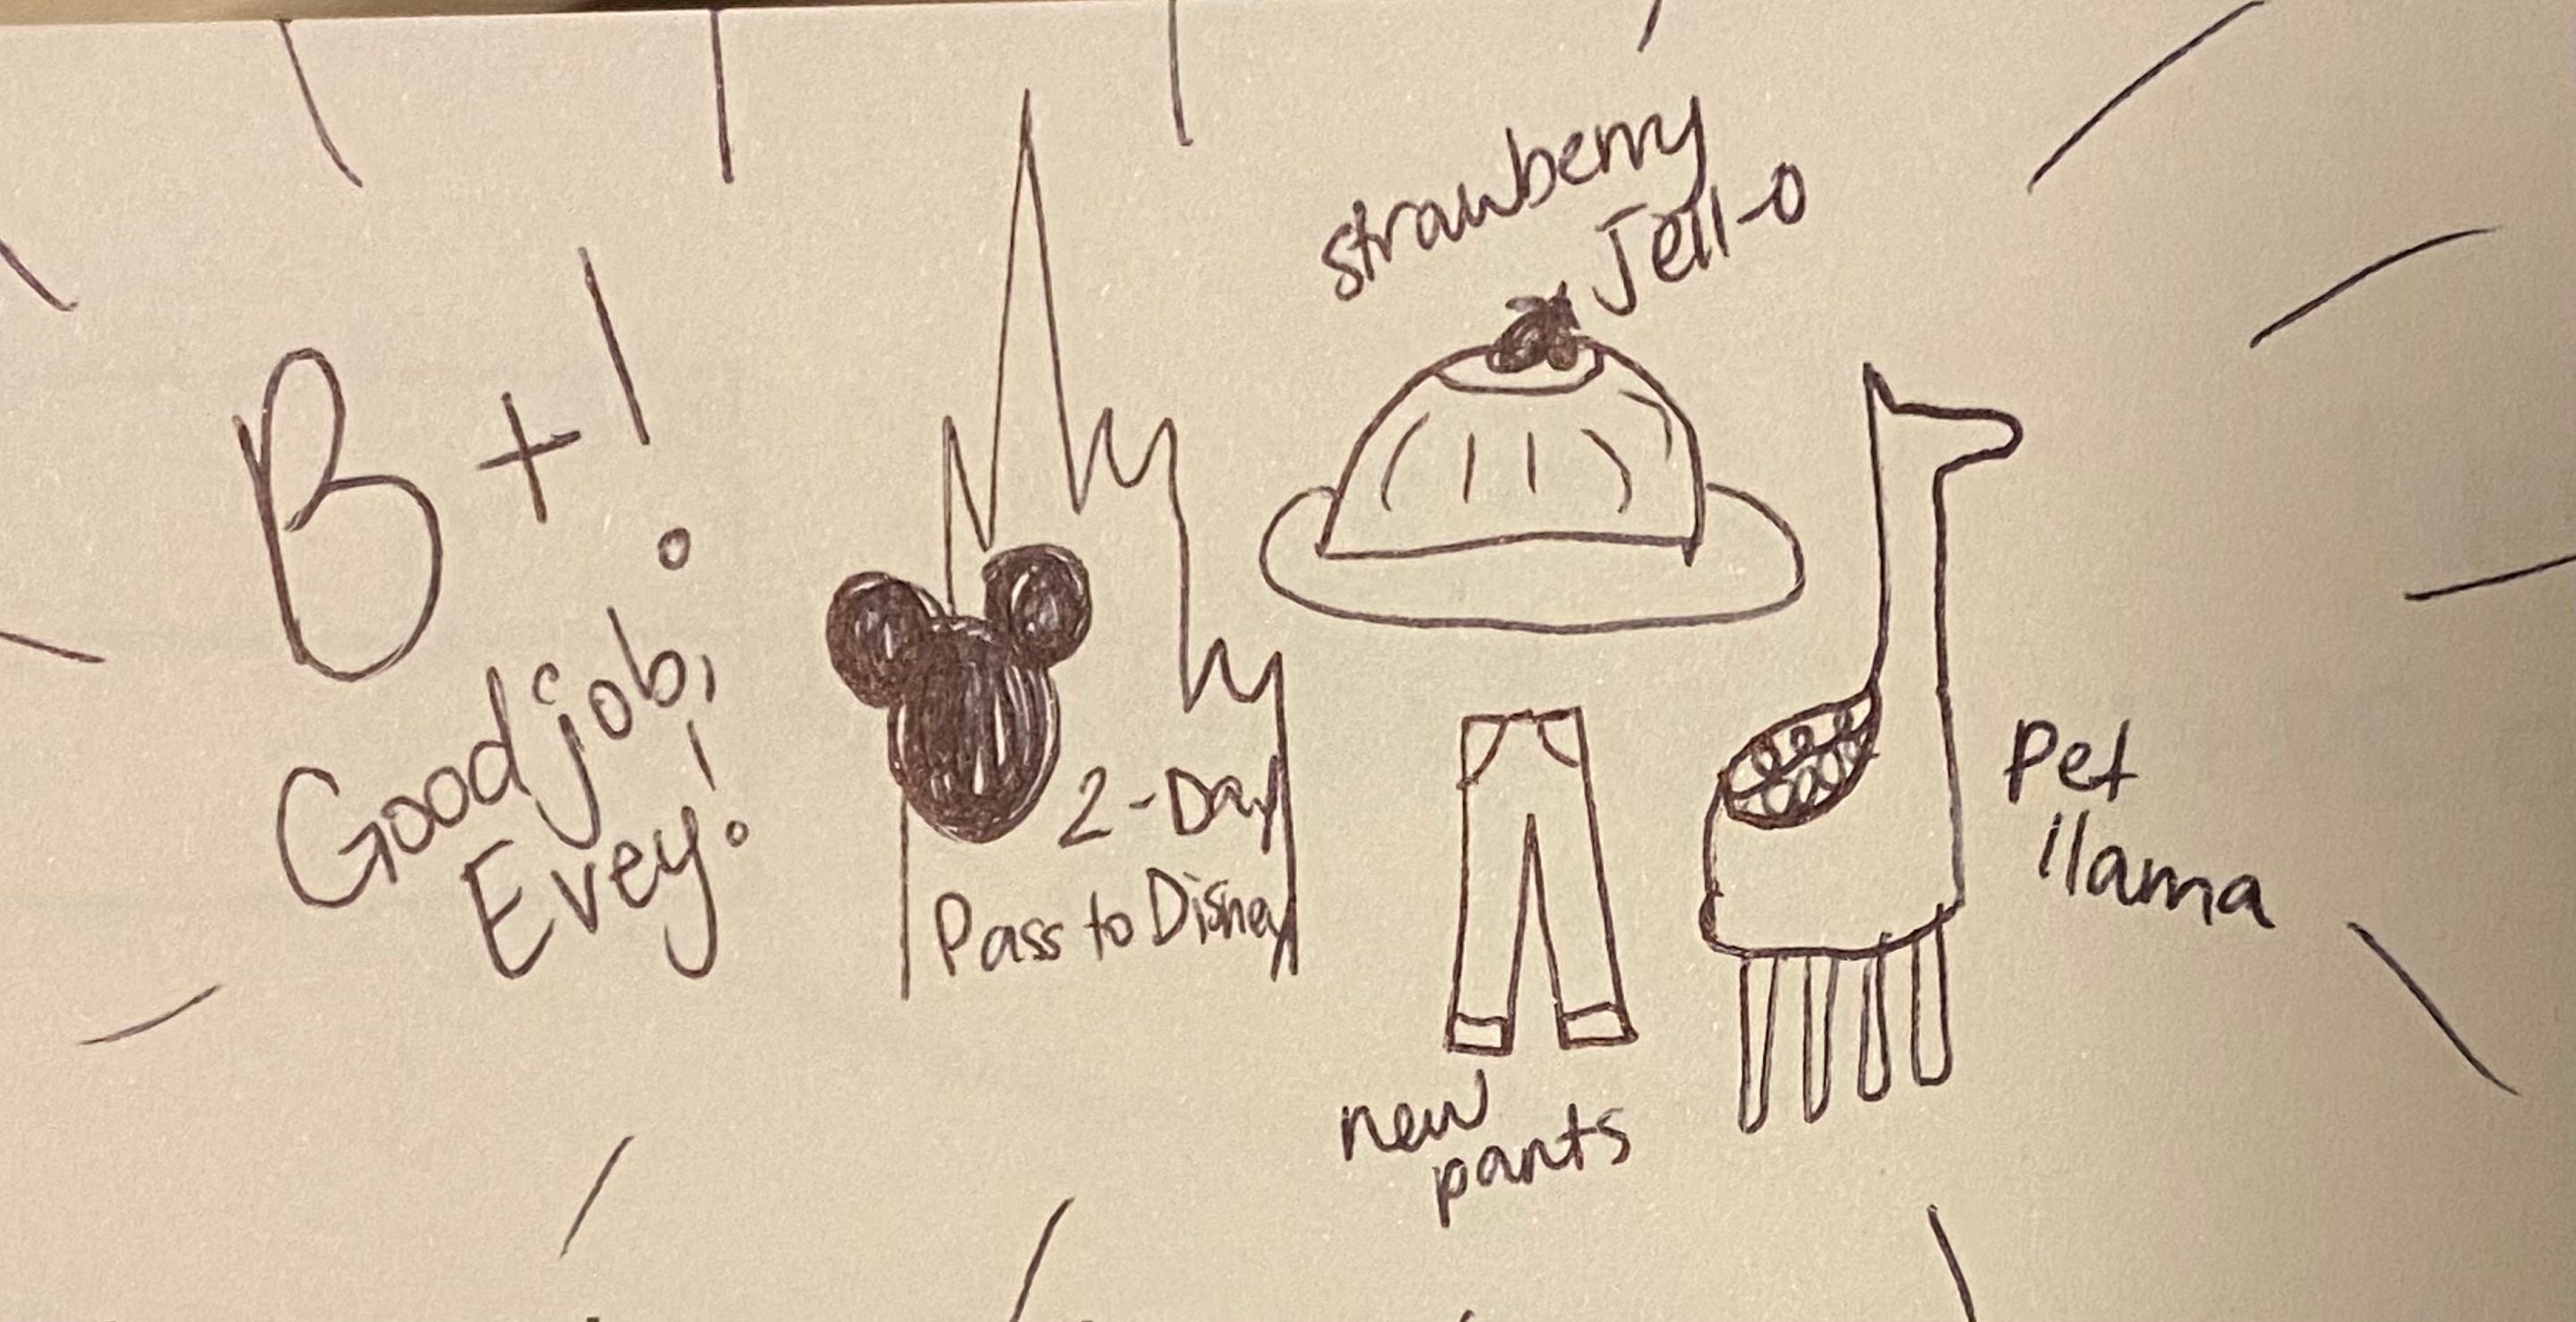 B+!
Good job,
Evey!
2-Day
Pass to Disney
strawberry
Jell-O
new
pants
Pet
llama